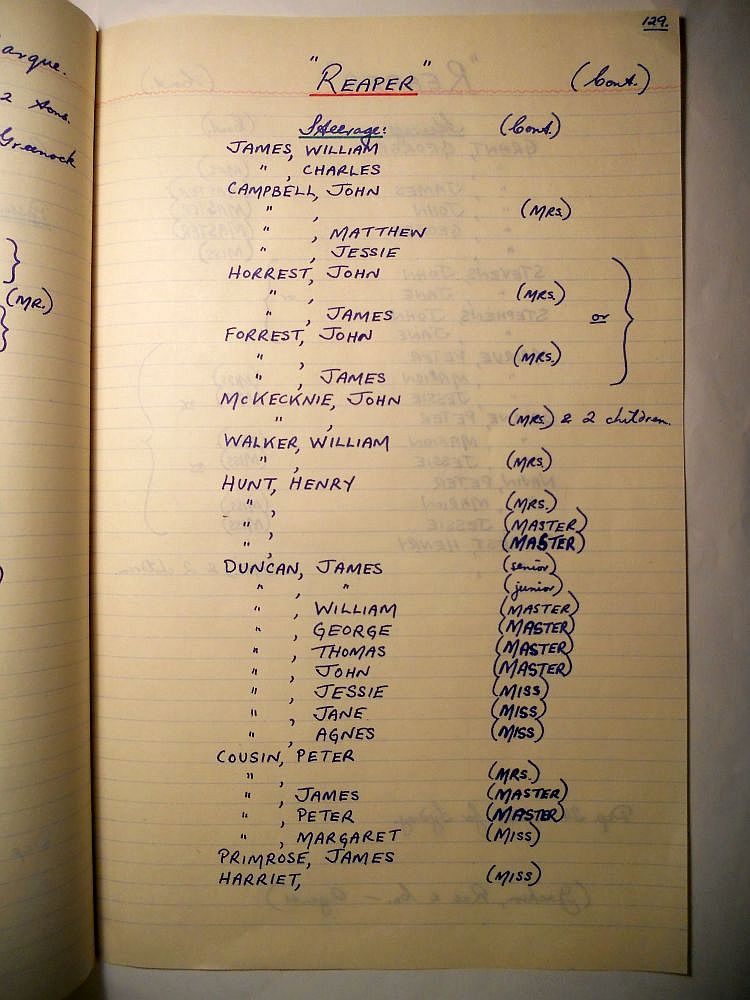 arque.
2 Sons.
Greenock
(MR.)
129.
"REAPER" (Cont.)
Steerage: (Cont.)
JAMES, WILLIAM
" , CHARLES
CAMPBELL, JOHN
" , (MRS.)
" , MATTHEW
" , JESSIE
HORREST, JOHN
" , (MRS.)
" , JAMES or
FORREST, JOHN
" , (MRS.)
" , JAMES
McKECKNIE, JOHN
" , (MRS.) & 2 children.
WALKER, WILLIAM
" , (MRS.)
HUNT, HENRY
" , (MRS.)
" , (MASTER)
" , (MASTER)
DUNCAN, JAMES (senior)
" , " (junior)
" , WILLIAM (MASTER)
" , GEORGE (MASTER)
" , THOMAS (MASTER)
" , JOHN (MASTER)
" , JESSIE (MISS)
" , JANE (MISS)
" , AGNES (MISS)
COUSIN, PETER
" , (MRS.)
" , JAMES (MASTER)
" , PETER (MASTER)
" , MARGARET (MISS)
PRIMROSE, JAMES
HARRIET, (MISS)